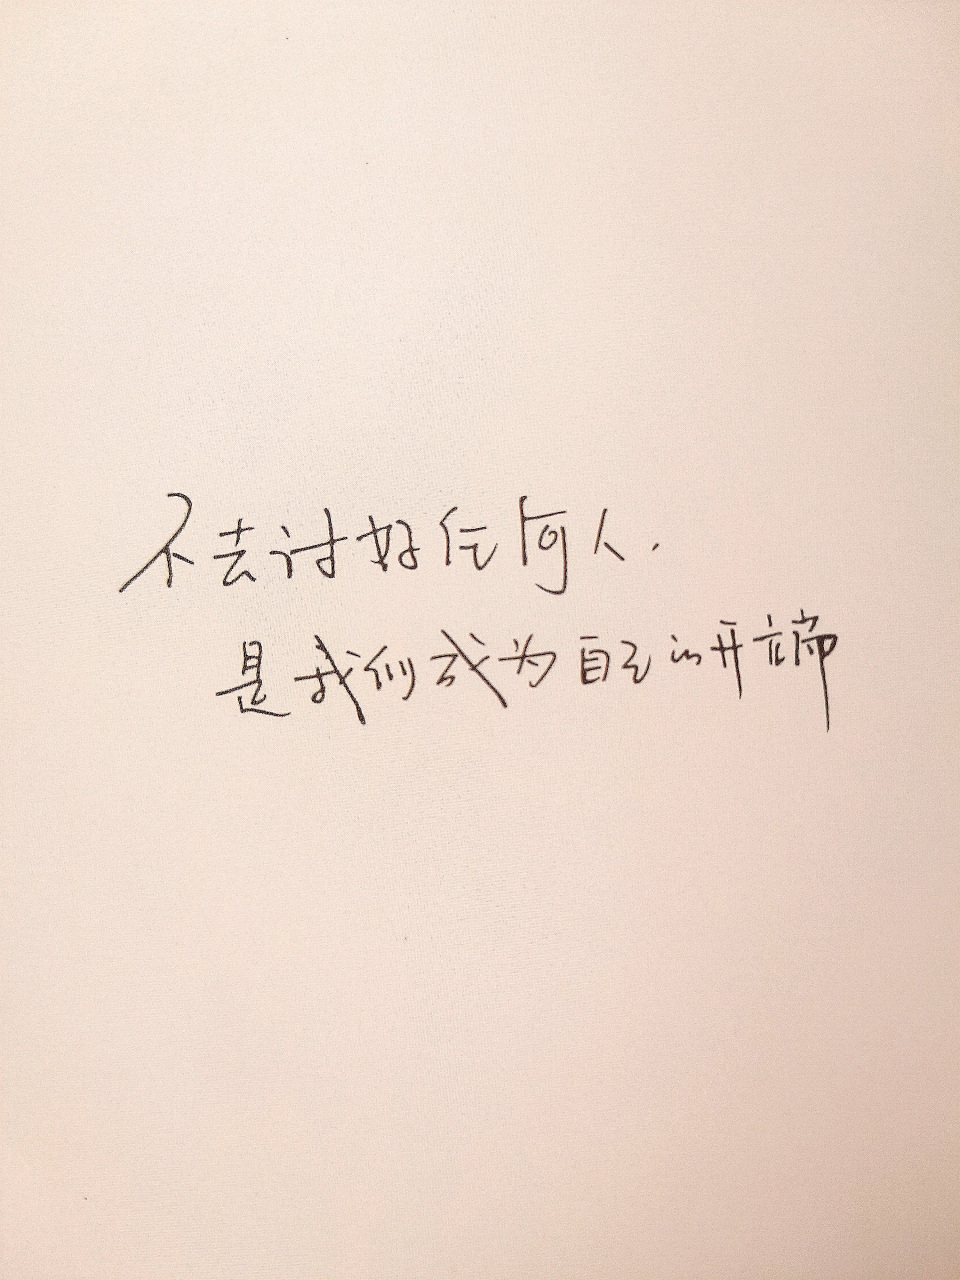 不去讨好任何人.
是我们成为自己的开端